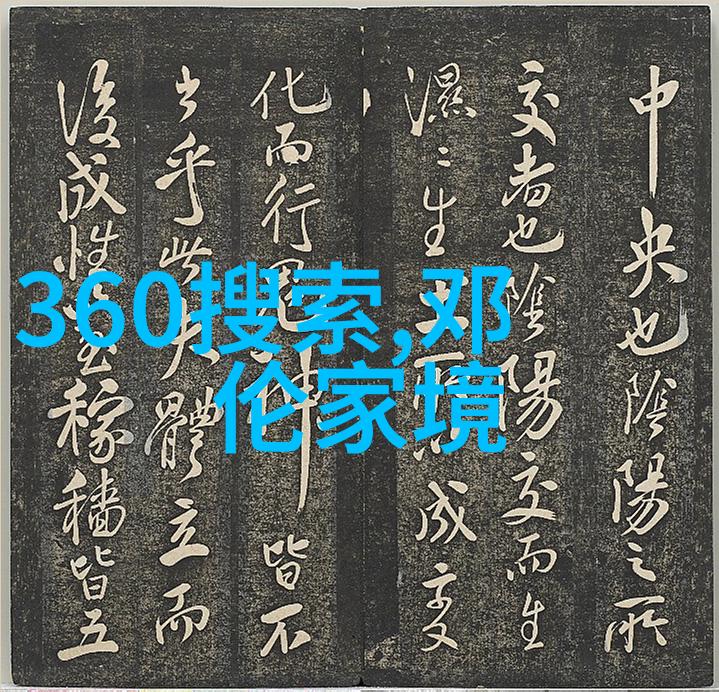 360搜索,邓
伦家境
中央也陰陽之所
交者也陰陽交而生
濕〻生土所成变
化而行鬼神皆不
出乎此夫體立而
後成性稼穡皆五